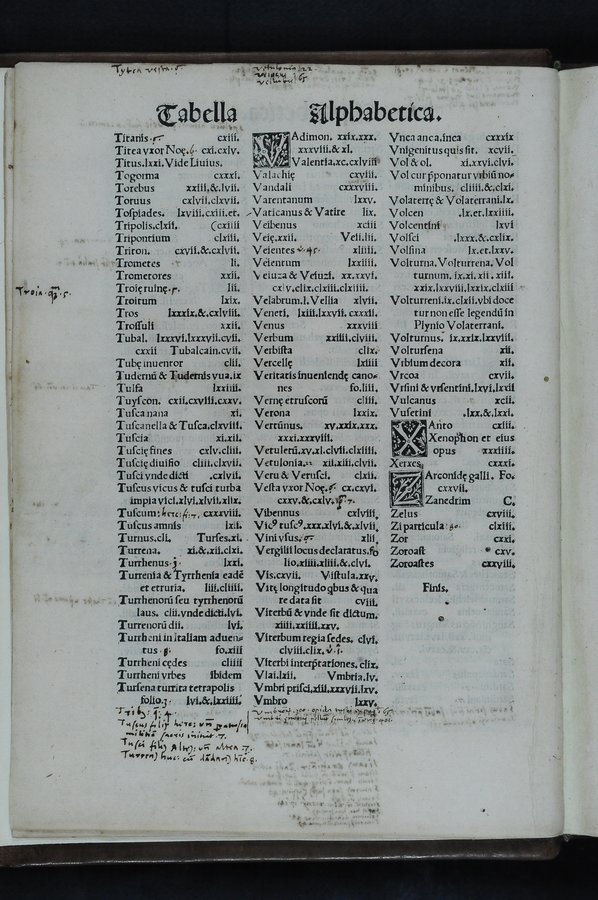 Tabella Alphabetica.
Titanis. cxiii.
Titea vxor Noę. cxi.cxlv.
Titus.lxxi. Vide Liuius.
Togorma cxxxi.
Torebus xxiii,&.lvii.
Toruus cxlvii.clxvii.
Tospiades. lxviii.cxiii.et.
Tripolis.clxii. (cxiiii
Tripontium clxiii.
Triton. cxvii.&.cxlvii.
Trometes li.
Trometores xxii.
Troię ruinę. lii.
Troitum lxix.
Tros lxxxix.&.cxlviii.
Trossuli xxii.
Tubal. lxxxvi.lxxxvii.cvi.
cxxii Tubalcain.cvii.
Tubę inuentor clii.
Tudernū & Tudernis vua.ix
Tulfa lxxiiii.
Tuyscon. cxii.cxviii.cxxv.
Tusca nana xi.
Tuscanella & Tusca.clxviii.
Tuscia xi.xii.
Tuscię fines cxlv.cliii.
Tuscię diuisio cliii.clxvii.
Tusci ynde dicti .cxlvii.
Tuscus vicus & tusci turba
impia vici.xlvi.xlvii.xlix.
Tuscum: cxxxviii.
Tuscus amnis lxii.
Turnus.cli. Turses.xl.
Turrena. xi.&.xii.clxi.
Turrhenus. lxxi.
Turrenia & Tyrrhenia eadē
et etruria. liii.cliiii.
Turrhenorū seu tyrrhenorū
laus. clii.ynde dicti.lvi.
Turrenorū dii. lvi.
Turrheni in italiam aduen-
tus fo.xiii
Turrheni cędes cliiii
Turrheni vrbes ibidem
Tursena turrita tetrapolis
folio. lvi.&.lxxiiii.
VAdimon. xxix.xxx.
xxxviii.&.xl.
Valentia.xc.cxlviii
Valachię cxviii.
Vandali cxxxviii.
Varentanum lxxv.
Vaticanus & Vatire lix.
Veibenus xciii
Veię.xxii. Veii.lii.
Veientes xliiii.
Veientum lxxiiii.
Veiuza & Veiuzi. xx.xxvi.
cxlv.clix.clxiii.clxiiii.
Velabrum.l. Vellia xlvii.
Veneti. lxiii.lxxvii.cxxxii.
Venus xxxviii
Verbum xxiiii.clviii.
Verbista clix.
Vercellę lxiiii
Veritatis inueniendę cano-
nes fo.liii.
Vernę etruscorū cliii.
Verona lxxix.
Vertūnus. xv.xxix.xxx.
xxxi.xxxviii.
Vetulerū.xv.xl.clvii.clxiiii.
Vetulonia. xii.xiii.clvii.
Veru & Verusci. clxii.
Vesta vxor Noę. cx.cxvi.
cxxv.&.cxlv.
Vibennus cxlviii,
Vic⁹ tusc⁹.xxx.xlvi.&.xlvii.
Vini vsus. xlii,
Vergilii locus declaratus.fo
lio.xiiii.xliii.&.clvi.
Vis.cxvii. Vistula.xxv.
Vitę longitudo qbus & qua
re data sit cviii.
Viterbū & ynde sit dictum.
xiiii.xxiiii.xxv.
Viterbum regia sedes. clvi.
clviii.clix.
Viterbi interp̄tationes. clix.
Vlai.lxii. Vmbria.lv.
Vmbri prisci.xiii.xxxvii.lxv.
Vmbro lxxv.
Vnea anca.inea cxxxix
Vnigenitus quis sit. xcvii.
Vol & ol. xi.xxvi.clvi.
Vol cur pponatur vrbiū no-
minibus. cliiii.&.clxi.
Volaterrę & Volaterrani.lx.
Volcen .lx.et.lxxiiii.
Volcentini lxvi
Volsci .lxxx.&.cxlix.
Volsina lx.et.lxxv.
Volturna. Volturrena. Vol
turnum. ix.xi. xii. xiii.
xxix.lxxviii.lxxix.clxiii
Volturreni.ix.clxii.vbi doce
tur non esse legendū in
Plynio Volaterrani.
Volturnus. ix.xxix.lxxviii.
Voltursena xii.
Vrbium decora xii.
Vrcea cxvii.
Vrsini & vrsentini.lxvi.lxxii
Vulcanus xcii.
Vusetini .lxx.&.lxxi.
XAnto cxlii.
Xenophon et eius
opus xxxiiii.
Xerxes cxxxi.
ZArconidę galli. Fo.
cxxvii.
Zanedrim C.
Zelus cxviii.
Zi particula clxiii.
Zor cxxi.
Zoroast cxv.
Zoroastes cxxviii.
Finis.